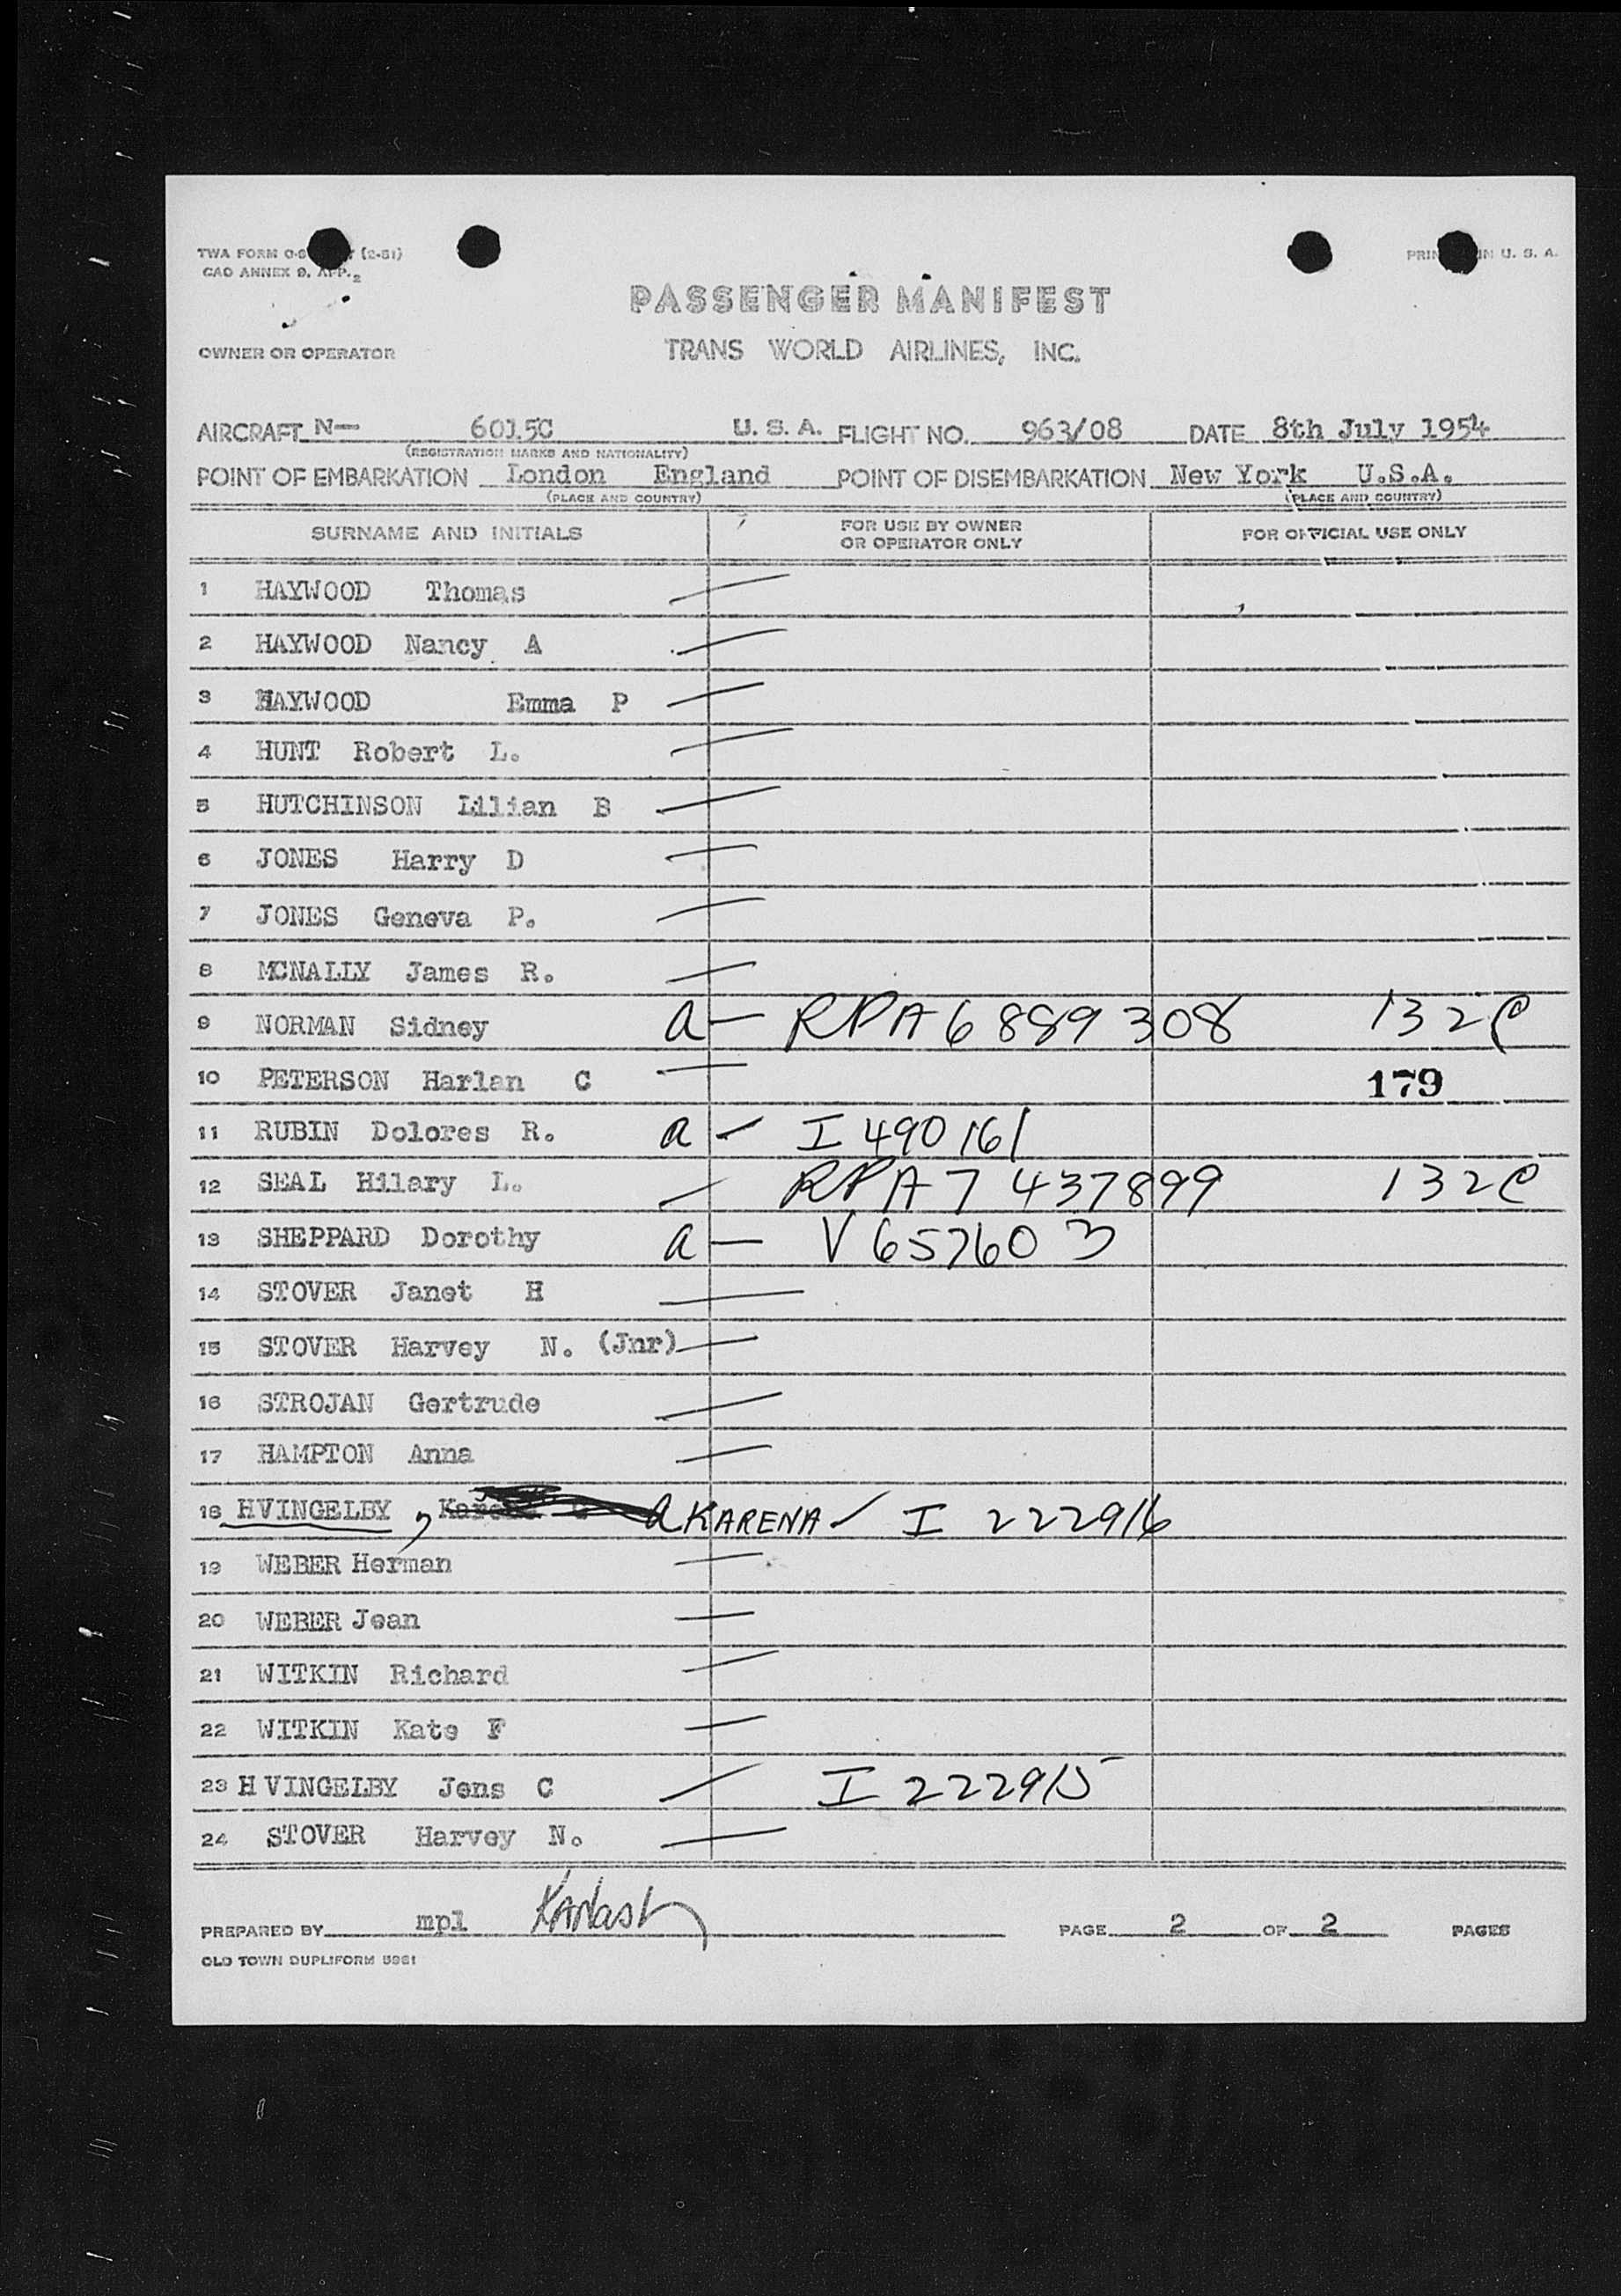 TWA FORM O-9 (2-51)
PRIN IN U. S. A.
CAO ANNEX 9, APP. 2
PASSENGER MANIFEST
OWNER OR OPERATOR TRANS WORLD AIRLINES, INC.
AIRCRAFT N— 6015C U. S. A. FLIGHT NO. 963/08 DATE 8th July 1954
(REGISTRATION MARKS AND NATIONALITY)
POINT OF EMBARKATION London England POINT OF DISEMBARKATION New York U.S.A.
(PLACE AND COUNTRY) (PLACE AND COUNTRY)
SURNAME AND INITIALS FOR USE BY OWNER OR OPERATOR ONLY FOR OFFICIAL USE ONLY
1 HAYWOOD Thomas —
2 HAYWOOD Nancy A —
3 HAYWOOD Emma P —
4 HUNT Robert L. —
5 HUTCHINSON Lilian B —
6 JONES Harry D —
7 JONES Geneva P. —
8 MCNALLY James R. —
9 NORMAN Sidney a — RPA 6889308 132C
10 PETERSON Harlan C — 179
11 RUBIN Dolores R. a — I 490161
12 SEAL Hilary L. — RPA 7437899 132C
13 SHEPPARD Dorothy a — V657603
14 STOVER Janet H —
15 STOVER Harvey N. (Jnr) —
16 STROJAN Gertrude —
17 HAMPTON Anna —
18 HVINGELBY, a KARENA — I 222916
19 WEBER Herman —
20 WEBER Jean —
21 WITKIN Richard —
22 WITKIN Kate F —
23 HVINGELBY Jens C — I 222915
24 STOVER Harvey N. —
PREPARED BY mpl PAGE 2 OF 2 PAGES
OLD TOWN DUPLIFORM 5961